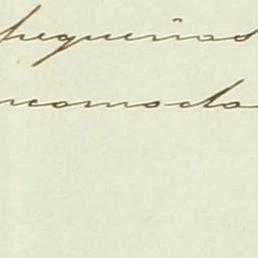 pequeñas
ncomoda